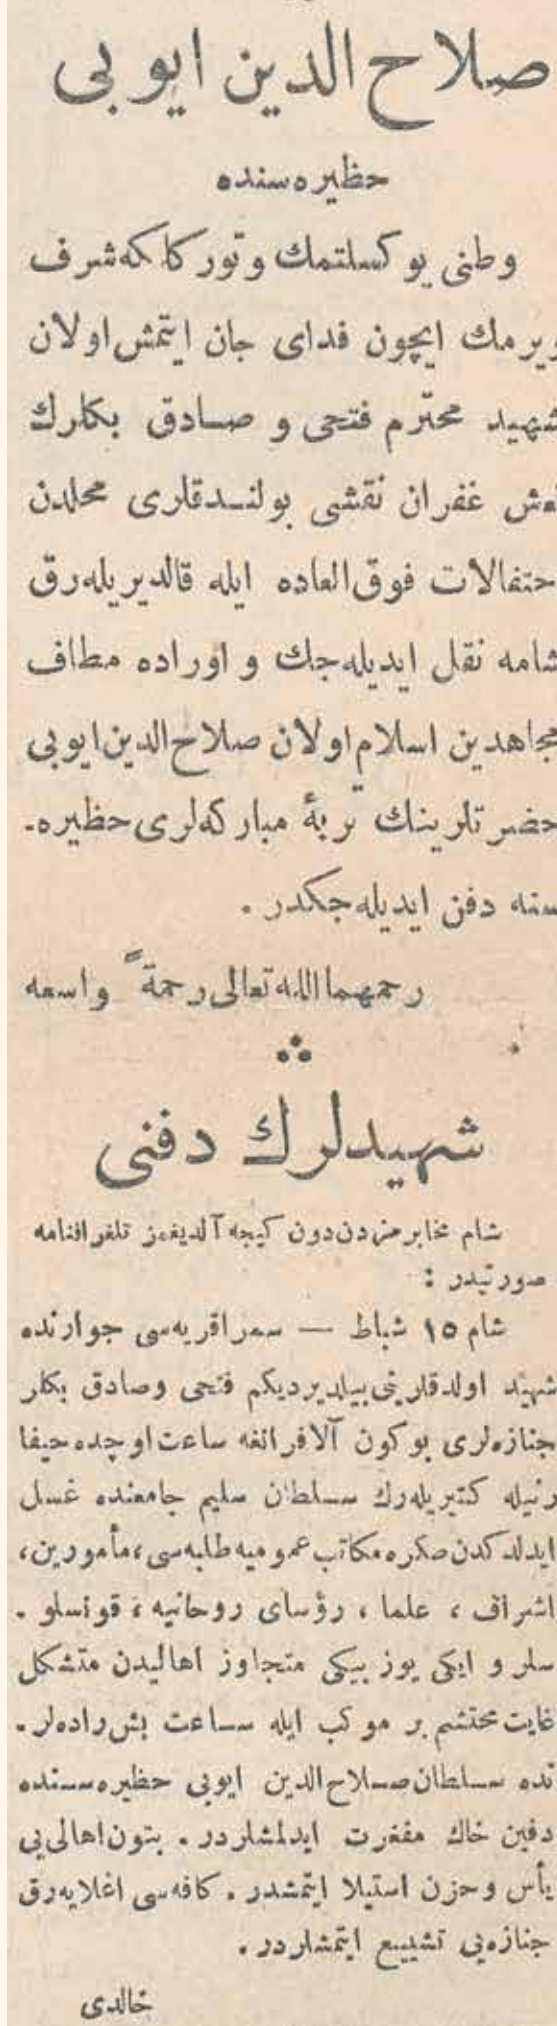 صلاح الدین ایوبی
حظیره‌سنده
وطنی یوكسلتمك و توركلكه شرف
ویرمك ایچون فدای جان ایتمش اولان
شهید محترم فتحی و صادق بكلرك
نعش غفران نقشی بولندقلری محلدن
احتفالات فوق‌العاده ایله قالدیریله‌رق
شامه نقل ایدیله‌جك و اوراده مطاف
مجاهدین اسلام اولان صلاح‌الدین ایوبی
حضرتلرینك تربهٔ مباركه‌لری حظیره-
سنه دفن ایدیله‌جكدر .
رحمهما الله تعالی رحمةً واسعه
شهیدلرك دفنی
شام مخابرمزدن دون كیجه آلدیغمز تلغرافنامه
صورتیدر :
شام ١٥ شباط — سمرا قریه‌سی جوارنده
شهید اولدقلرینی بیلدیردیكم فتحی و صادق بكلر
جنازه‌لری بوكون آلافرانغه ساعت اوچده حیفا
ترنیله كتیریله‌رك سلطان سلیم جامعنده غسل
ایدلدكدن صكره مكاتب عمومیه طلبه‌سی ، مأمورین،
اشراف ، علما ، رؤسای روحانیه ، قونسلو -
سلر و ایكی یوز بیكی متجاوز اهالیدن متشكل
غایت محتشم بر موكب ایله ساعت بش راده‌لر-
نده سلطان صلاح‌الدین ایوبی حظیره‌سنده
دفین خاك مغفرت ایدلمشلردر . بتون اهالی‌یی
یأس و حزن استیلا ایتمشدر . كافه‌سی اغلایه‌رق
جنازه‌یی تشییع ایتمشلردر .
خالدی